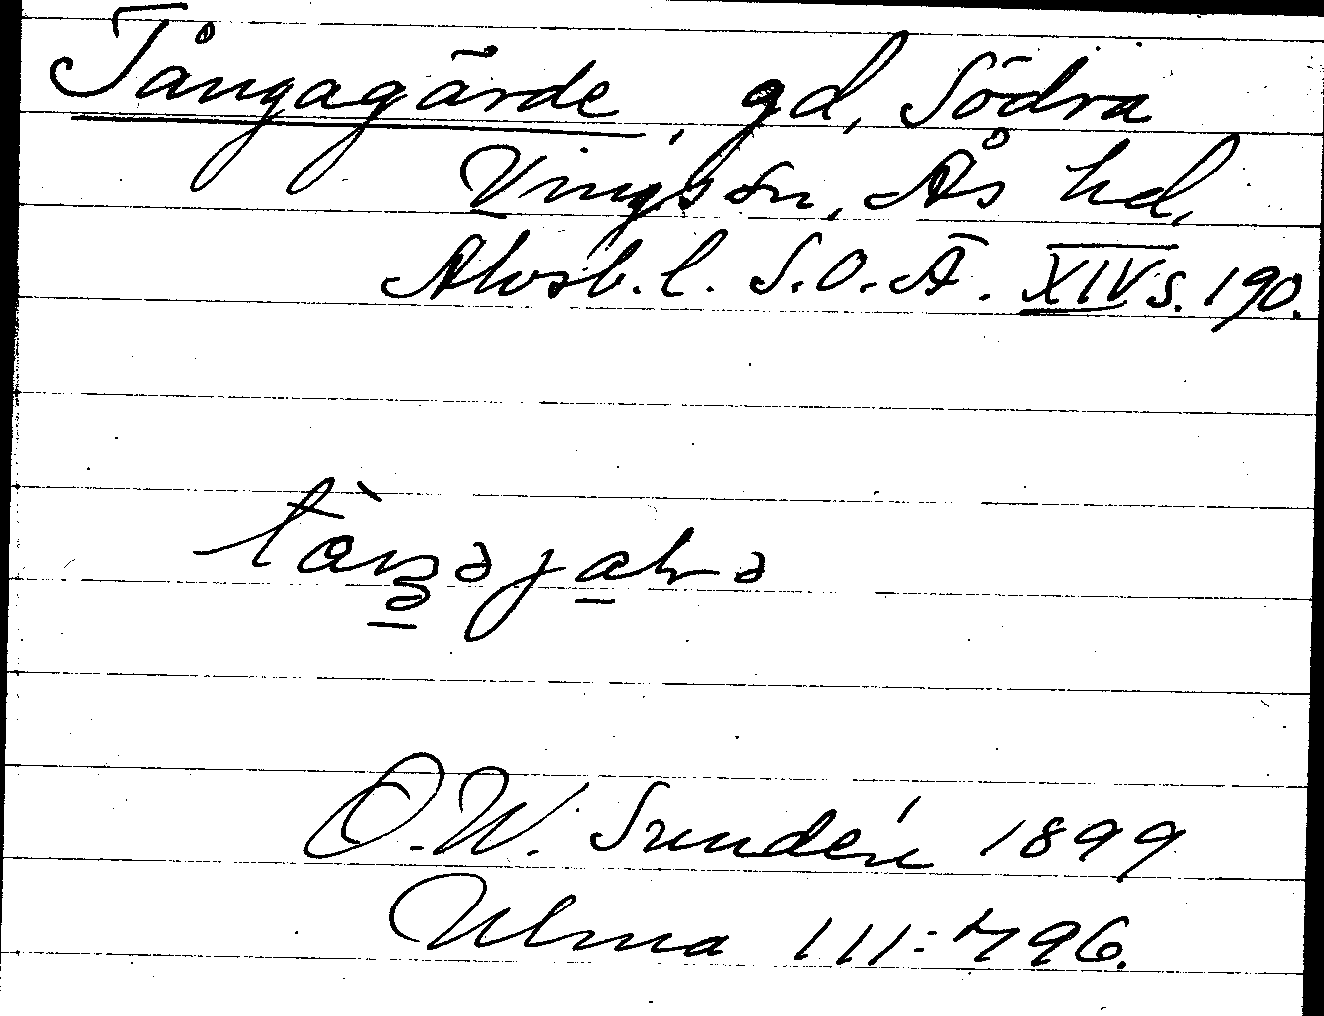 Tångagärde, gd, Södra
Vings sn, Ås hd,
Älvsb. l. S.O.Ä. XIV s. 190.
O.W. Sundén 1899
Ulma 111:796.